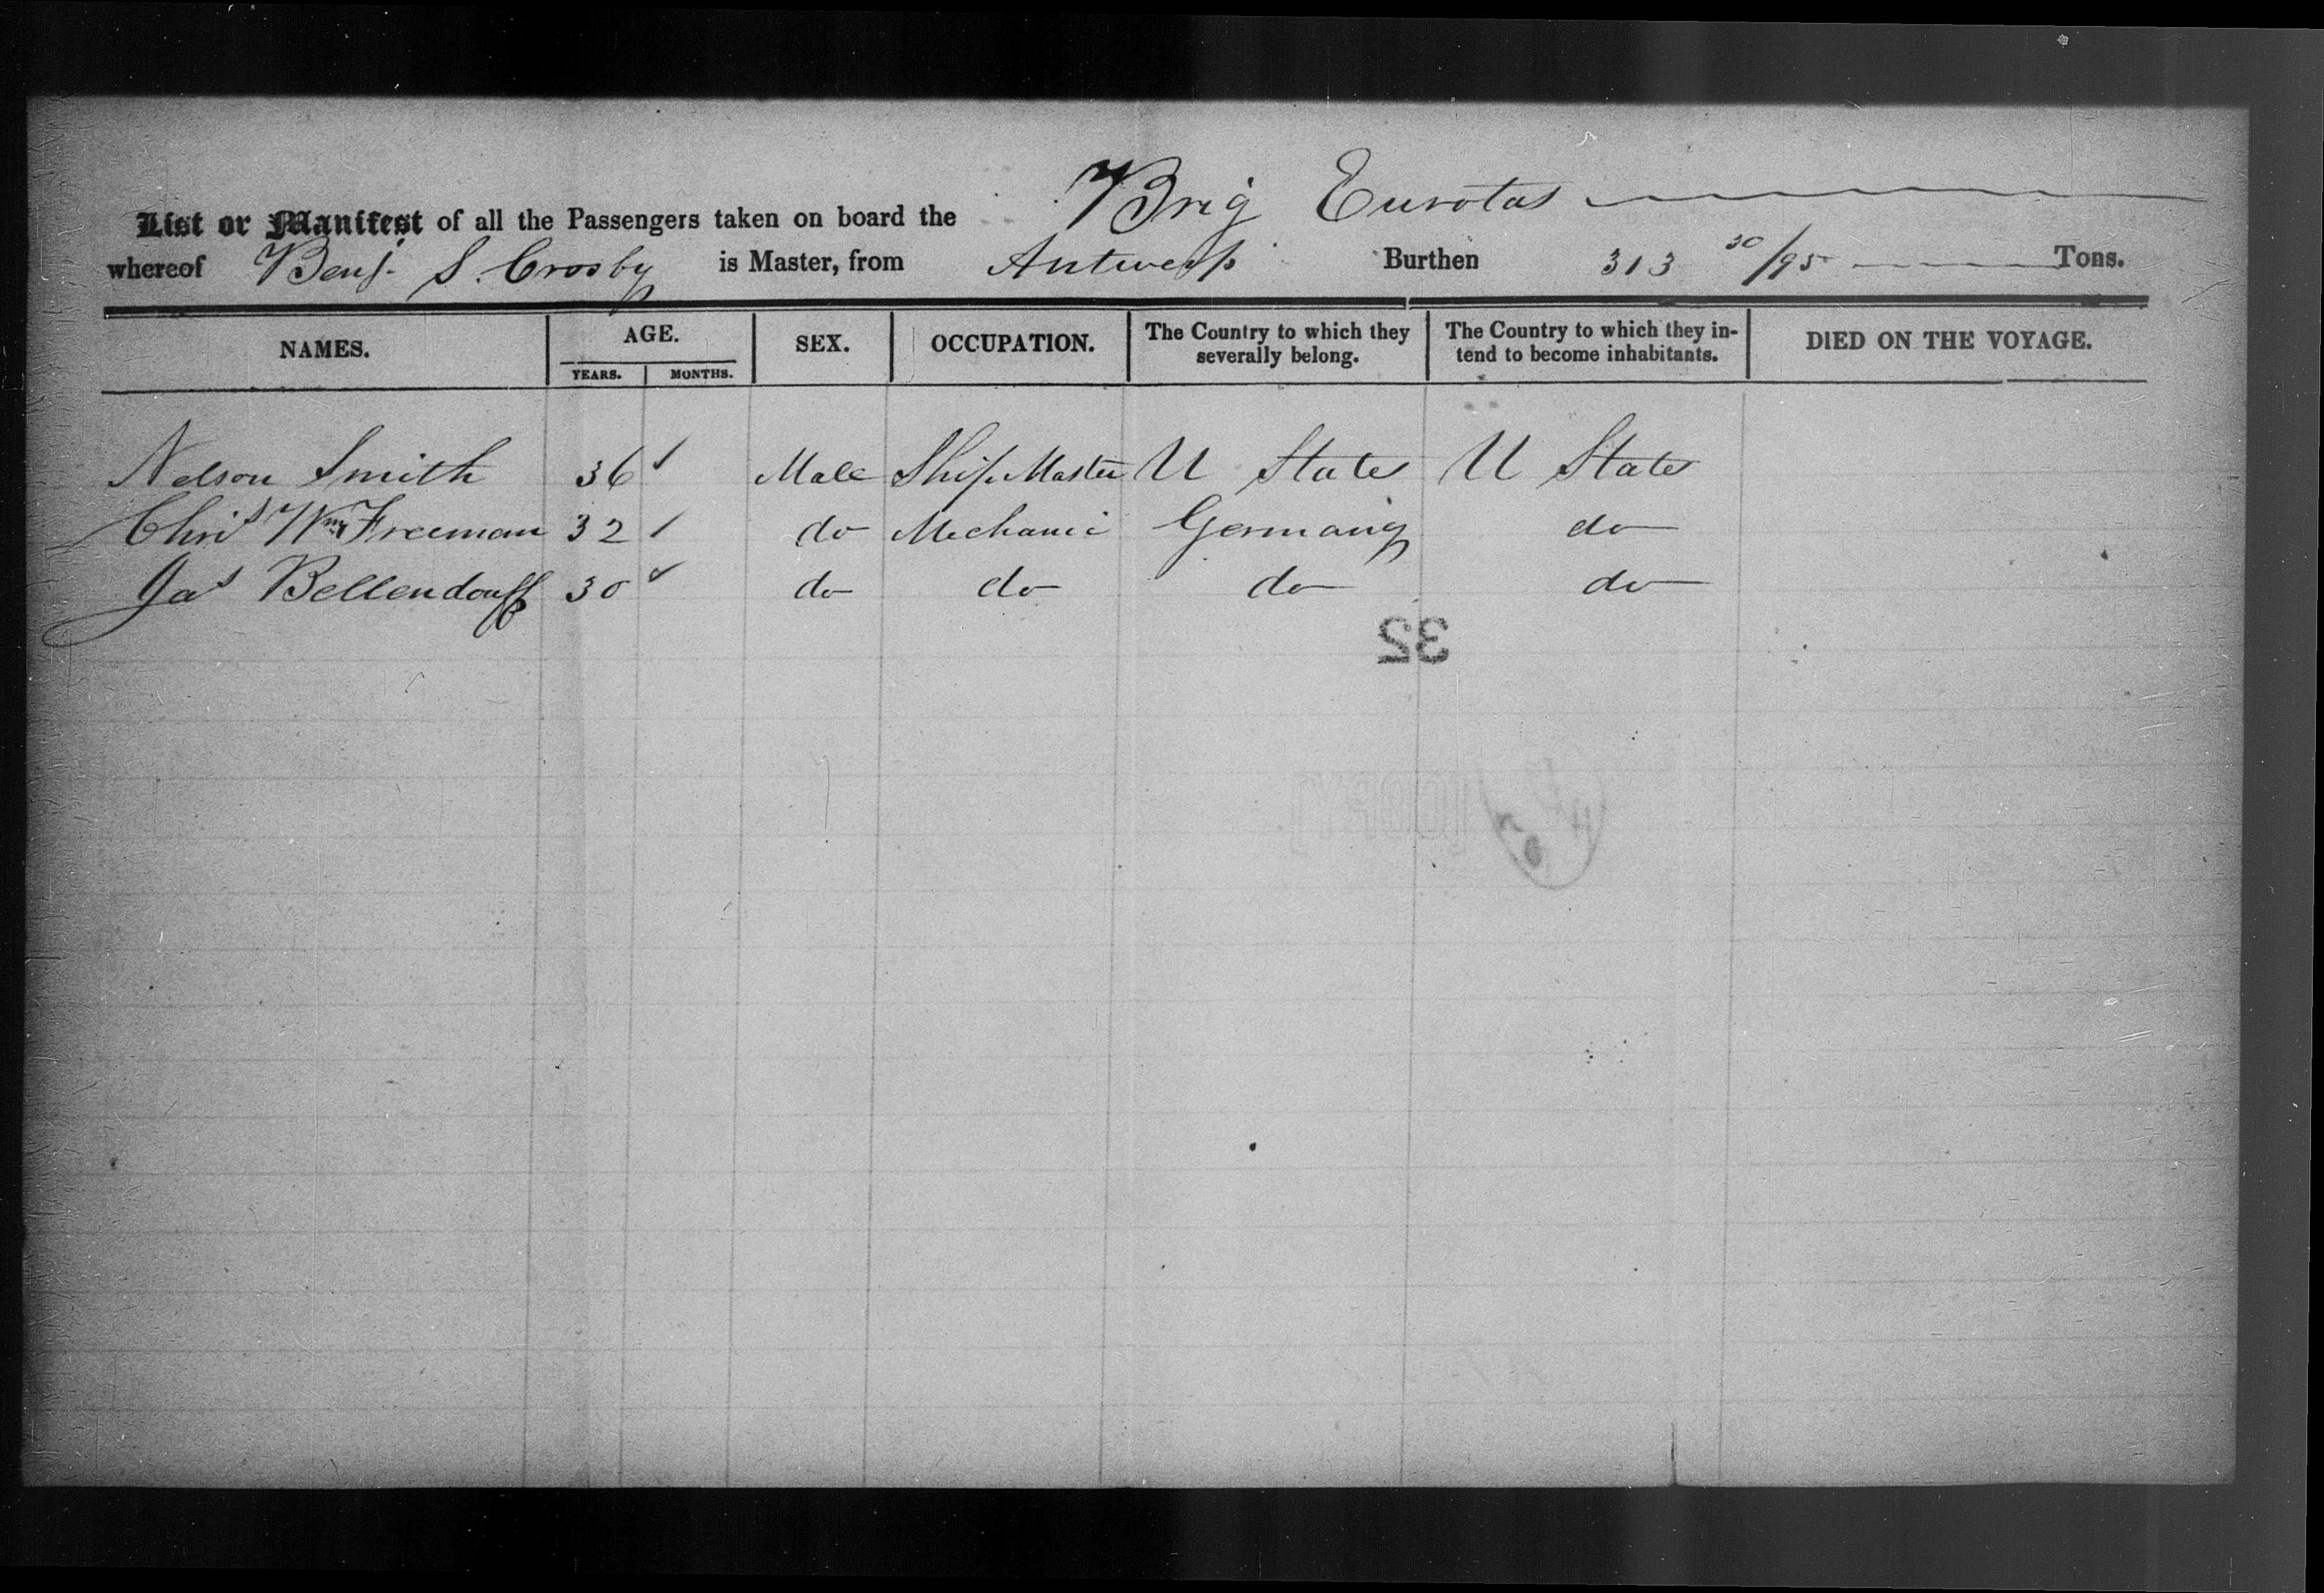 List or Manifest of all the Passengers taken on board the Brig Eurotas
whereof Benj. S. Crosby is Master, from Antwerp Burthen 313 30/95 Tons.
NAMES. AGE. SEX. OCCUPATION. The Country to which they severally belong. The Country to which they intend to become inhabitants. DIED ON THE VOYAGE.
YEARS. MONTHS.
Nelson Smith 36 Male Ship Master U States U States
Chris Wm Freeman 32 do Mechanic Germany do
Jas Bellendouff 30 do do do do
32